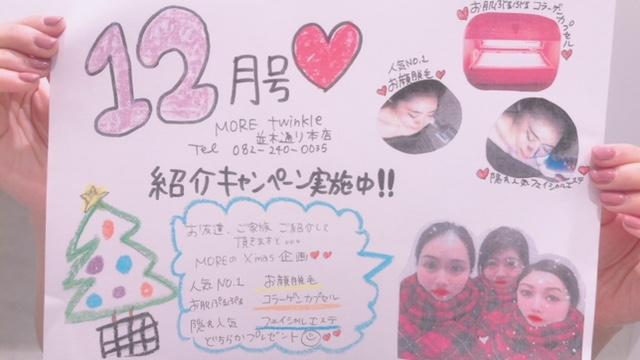 12月号
MORE twinkle
並木通り本店
Tel 082-240-0035
紹介キャンペーン実施中!!
お友達、ご家族 ご紹介して
頂きますと...
MOREのXmas企画
人気NO.1 お顔脱毛
お肌ぷるぷる コラーゲンカプセル
隠れ人気 フェイシャルエステ
どちらかプレゼント
お肌ぷるぷる コラーゲンカプセル
人気NO.1
お顔脱毛
隠れ人気フェイシャルエステ